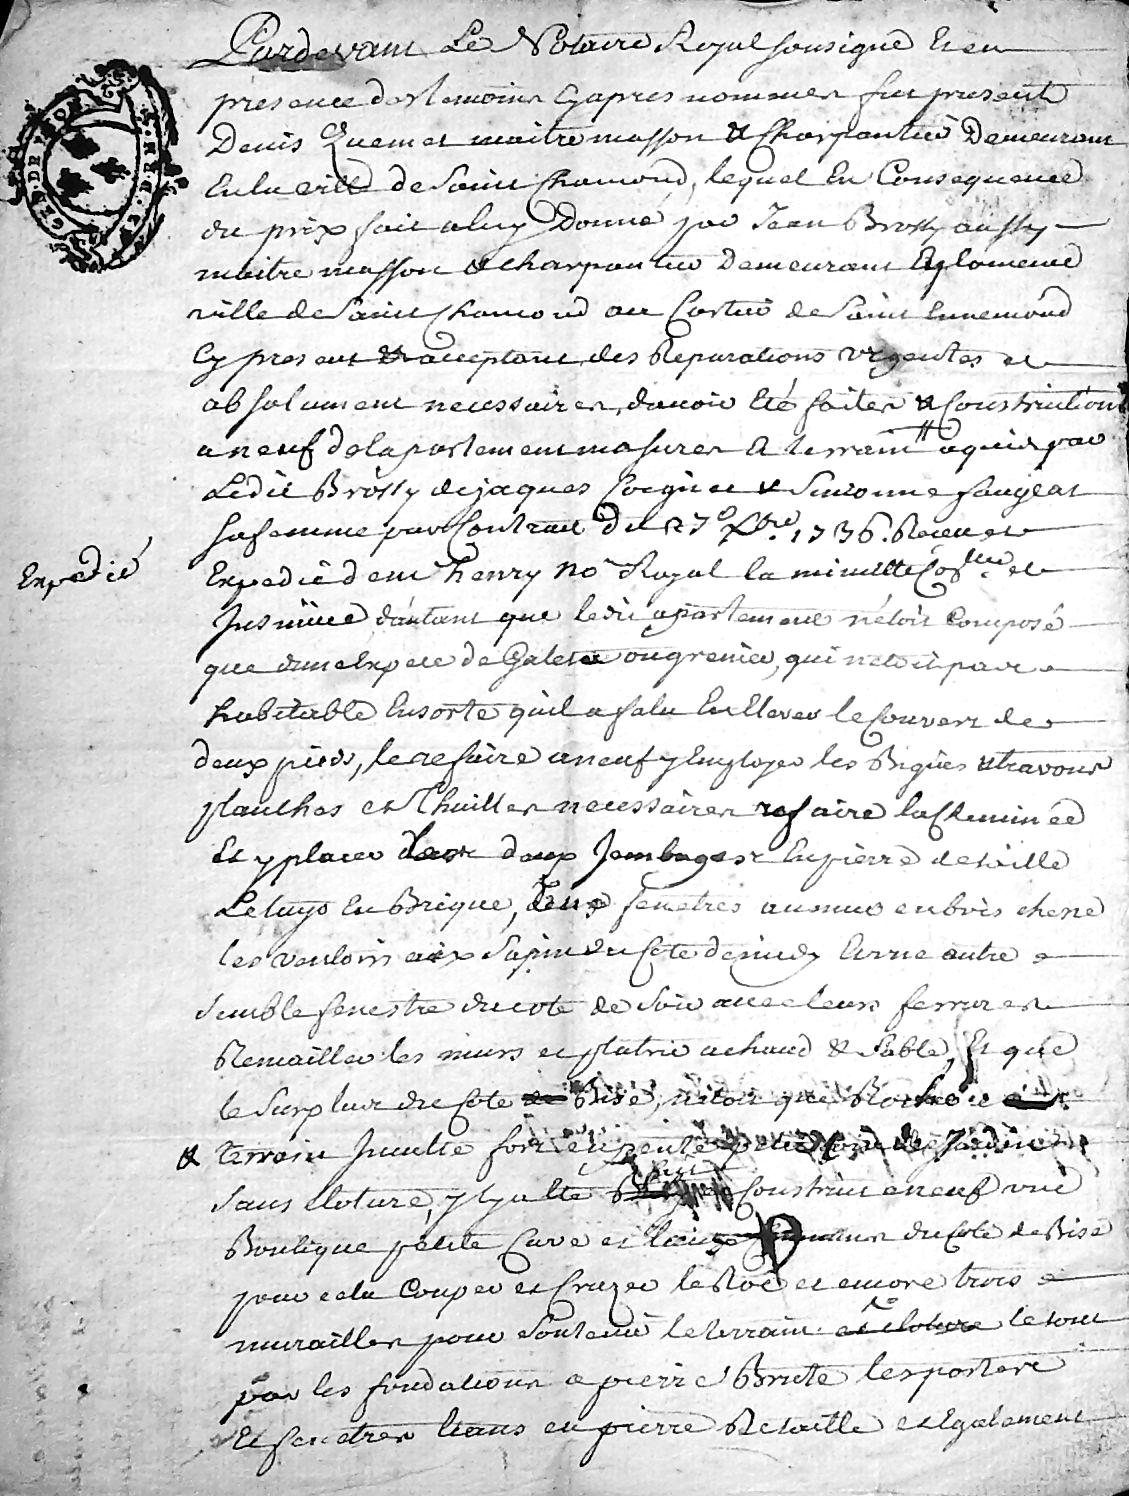 Pardevant Le Notaire Royal sousigné Et en
presence des temoins cy apres nommes fut present
Denis Quemet maitre masson & Charpantier Demeurant
En la ville de Saint Chamond, lequel En Consequence
du prix fait a luy Donné par Jean Brossy aussy
maitre masson & charpantier demeurant En la meme
ville de Saint Chamond au Cartier de Saint Ennemond
Cy present & acceptant des Reparations urgentes et
absolument necessaires, d'avoir Eté faites & Constructions
a neuf de lapartement masures & terrain aquis par
Ledit Brossy de jaques & Simonne faugeat
sa femme par Contrat du 27e Xbre 1736. Receu et
Expedié
Expedié dem Thenry no.re Royal la minutte et
Insinüé d'autant que ledit apartement n'etoit Composé
que dune Espece de Galetas ou grenier, qui netoit pas
habitable Ensorte quil a falu En Elever le Couvert de
deux pieds, le refaire a neuf y Employer les Bigues & travons
planches et Thuilles necessaires refaire la Cheminée
Et y placer deux Jambages En pierre de taille
Le tuyo En Brique, deux fenetres au mur en bois chene
les ventoirs aix Sapin du Coté de midy Et une autre
semble fenestre du coté de Soir avec leurs ferrures
Remailler les murs et platrir a chaud & Sable, Et que
le Surplus du Coté de Bise, n'etoit que Rocher
& terrain Inculte fort en pente
sans cloture, y ayant eté Construit a neuf une
Boutique petite Cave et du Coté de Bise
pour cela Couper et Cruzer le Roc et encore trois
murailles pour Soutenir le terrain et cloture le tout
par les fondations a pierre Brute les portes
Et fenetres Etans en pierre de taille et Egalement